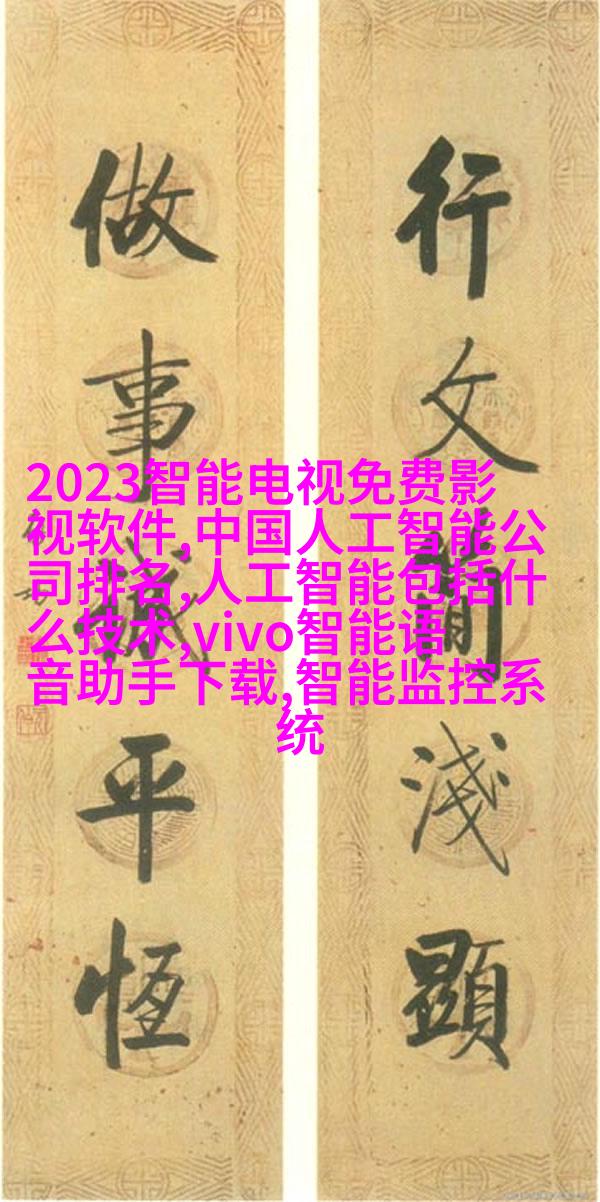 行文簡淺顯
做事誠平恆
2023智能电视免费影
视软件,中国人工智能公
司排名,人工智能包括什
么技术,vivo智能语
音助手下载,智能监控系
统